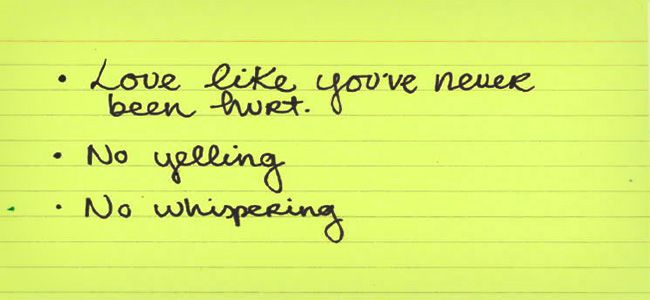 • Love like you've never
been hurt.
• No yelling
• No whispering